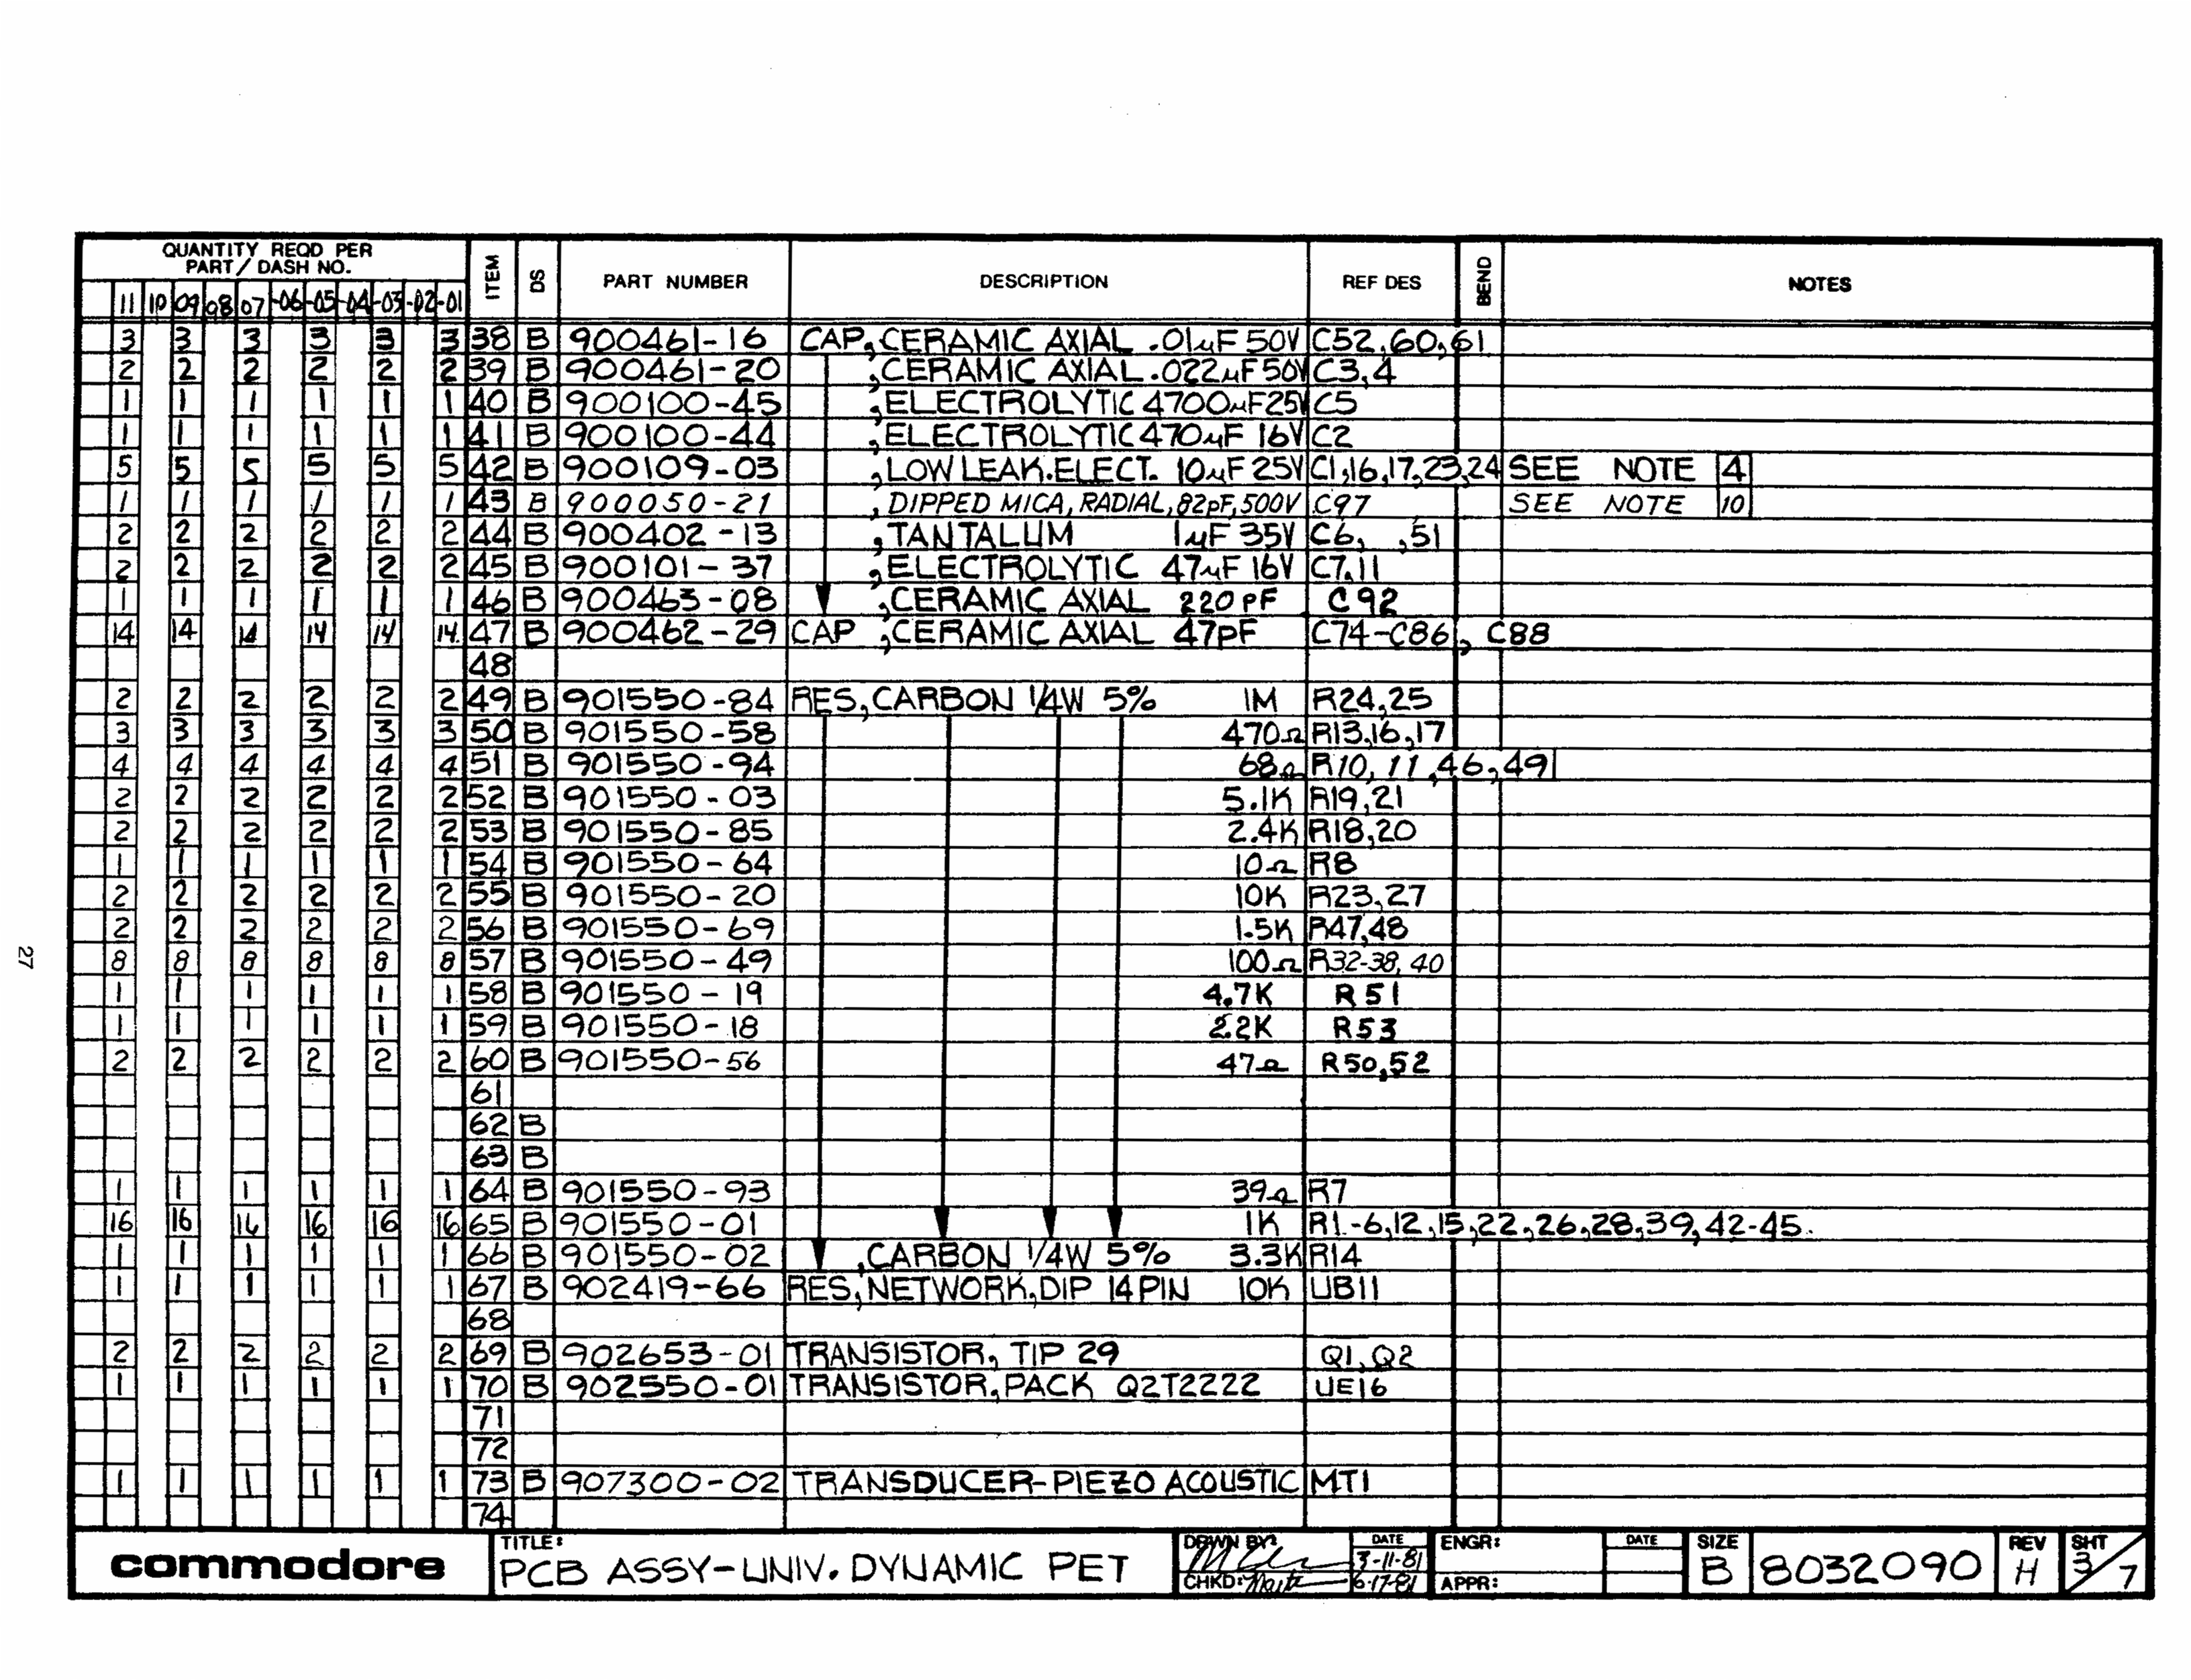 QUANTITY REQD PER
PART/ DASH NO.
11 10 09 08 07 -06 -05 -04 -03 -02 -01 ITEM DS PART NUMBER DESCRIPTION REF DES BEND NOTES
3 3 3 3 3 3 38 B 900461-16 CAP, CERAMIC AXIAL .01µF 50V C52,60,61
2 2 2 2 2 2 39 B 900461-20 ,CERAMIC AXIAL .022µF 50V C3,4
1 1 1 1 1 1 40 B 900100-45 ,ELECTROLYTIC 4700µF 25V C5
1 1 1 1 1 1 41 B 900100-44 ,ELECTROLYTIC 470µF 16V C2
5 5 5 5 5 5 42 B 900109-03 ,LOW LEAK.ELECT. 10µF 25V C1,16,17,23,24 SEE NOTE 4
1 1 1 1 1 1 43 B 900050-21 , DIPPED MICA, RADIAL, 82pF, 500V C97 SEE NOTE 10
2 2 2 2 2 2 44 B 900402-13 ,TANTALUM 1µF 35V C6, ,51
2 2 2 2 2 2 45 B 900101-37 ,ELECTROLYTIC 47µF 16V C7,11
1 1 1 1 1 1 46 B 900463-08 ,CERAMIC AXIAL 220PF C92
14 14 14 14 14 14. 47 B 900462-29 CAP ,CERAMIC AXIAL 47PF C74-C86, C88
48
2 2 2 2 2 2 49 B 901550-84 RES, CARBON 1/4W 5% 1M R24,25
3 3 3 3 3 3 50 B 901550-58 470Ω R13,16,17
4 4 4 4 4 4 51 B 901550-94 68Ω R10, 11,46,49
2 2 2 2 2 2 52 B 901550-03 5.1K R19,21
2 2 2 2 2 2 53 B 901550-85 2.4K R18,20
1 1 1 1 1 1 54 B 901550-64 10Ω R8
2 2 2 2 2 2 55 B 901550-20 10K R23,27
2 2 2 2 2 2 56 B 901550-69 1.5K R47,48
8 8 8 8 8 8 57 B 901550-49 100Ω R32-38, 40
1 1 1 1 1 1 58 B 901550-19 4.7K R51
1 1 1 1 1 1 59 B 901550-18 2.2K R53
2 2 2 2 2 2 60 B 901550-56 47Ω R50,52
61
62 B
63 B
1 1 1 1 1 1 64 B 901550-93 39Ω R7
16 16 16 16 16 16 65 B 901550-01 1K R1-6,12,15,22,26,28,39,42-45.
1 1 1 1 1 1 66 B 901550-02 ,CARBON 1/4W 5% 3.3K R14
1 1 1 1 1 1 67 B 902419-66 RES, NETWORK, DIP 14 PIN 10K UB11
68
2 2 2 2 2 2 69 B 902653-01 TRANSISTOR, TIP 29 Q1,Q2
1 1 1 1 1 1 70 B 902550-01 TRANSISTOR, PACK Q2T2222 UE16
71
72
1 1 1 1 1 1 73 B 907300-02 TRANSDUCER-PIEZO ACOUSTIC MT1
74
27
commodore
TITLE:
PCB ASSY-UNIV. DYNAMIC PET
DRWN BY: DATE 3-11-81
CHKD: 6-17-81
ENGR: DATE
APPR:
SIZE B
8032090
REV H
SHT 3/7